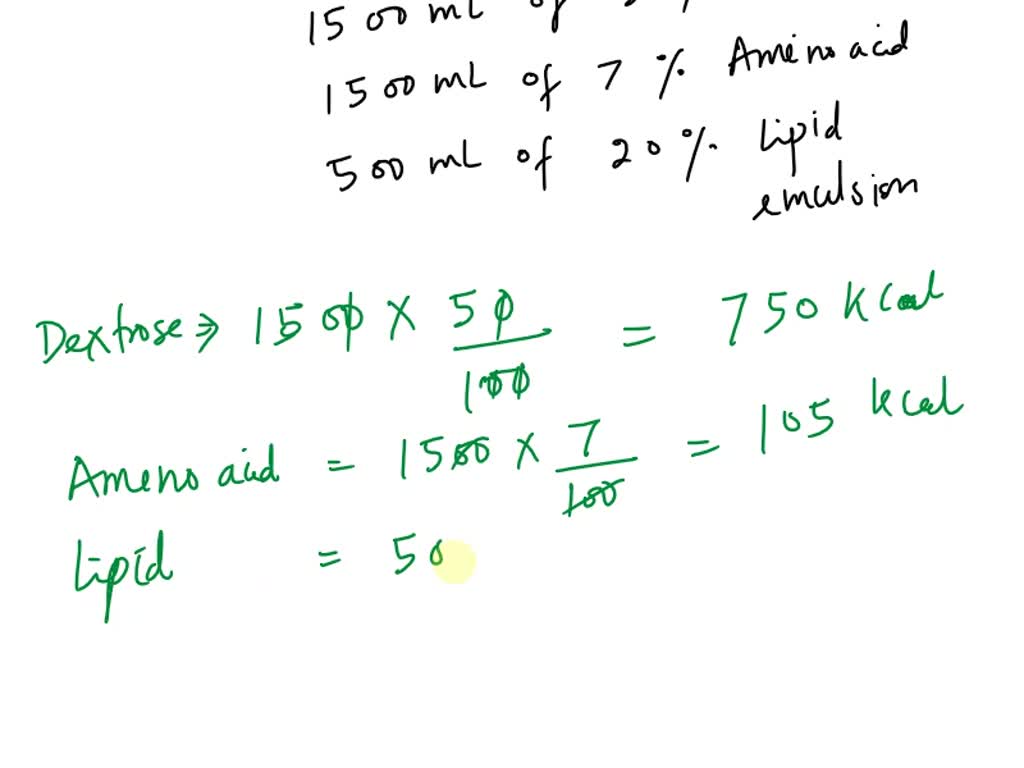 1500 mL of
1500 mL of 7 % Amino acid
500 mL of 20 % Lipid
emulsion
Dextrose ⇒ 1500 × 50/100 = 750 kcal
Ameno acid = 1500 × 7/100 = 105 kcal
Lipid = 50